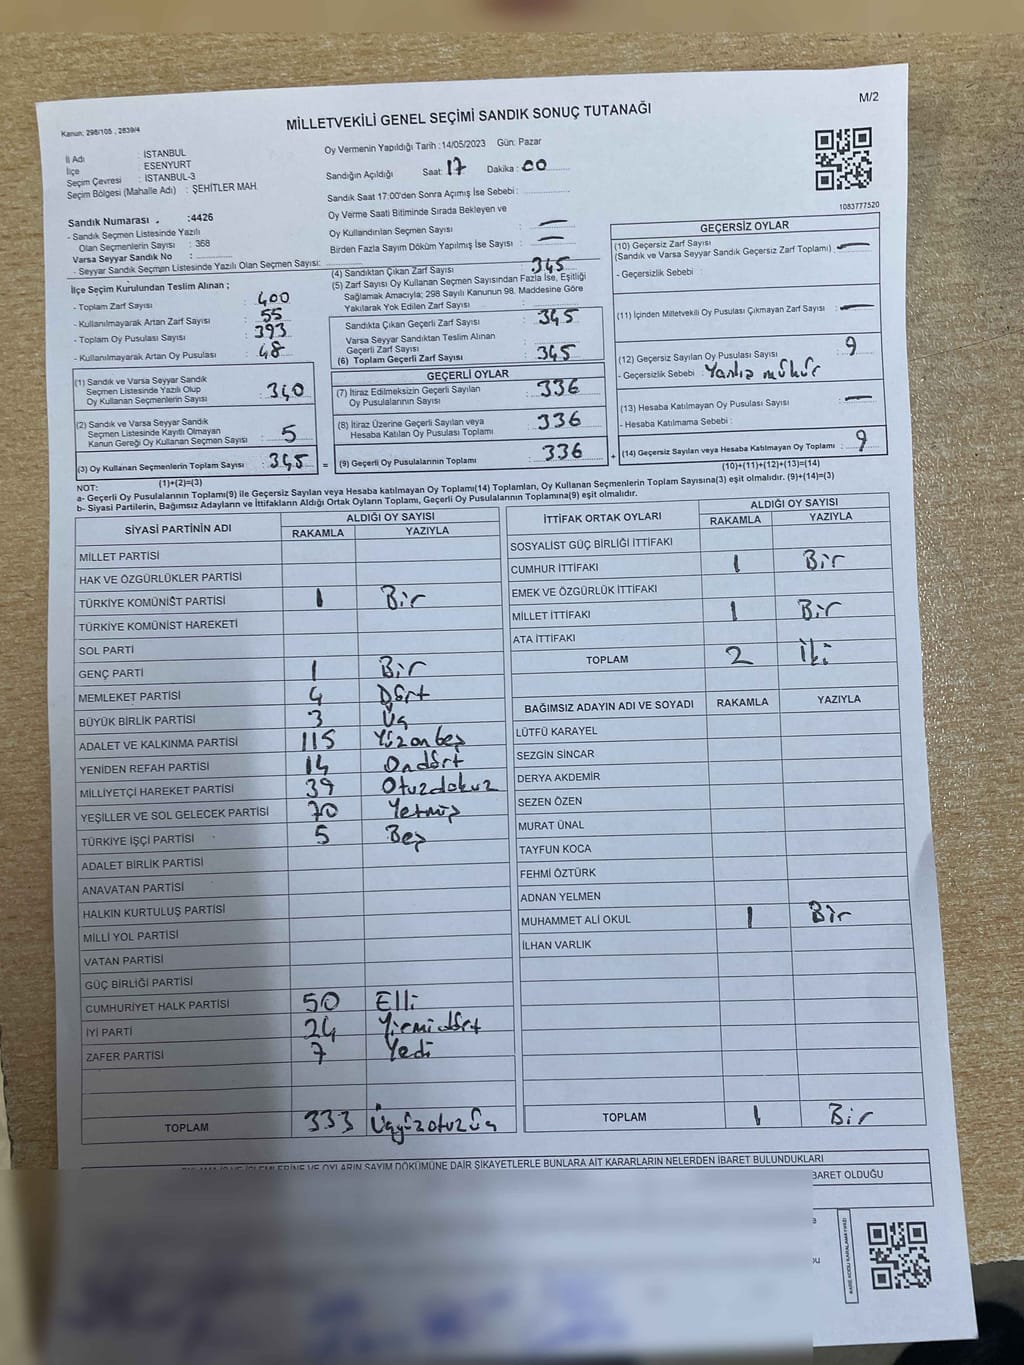 M/2
Kanun: 298/105 , 2839/4
MİLLETVEKİLİ GENEL SEÇİMİ SANDIK SONUÇ TUTANAĞI
İl Adı : İSTANBUL
İlçe ESENYURT
Seçim Çevresi : İSTANBUL-3
Seçim Bölgesi (Mahalle Adı) : ŞEHİTLER MAH
Oy Vermenin Yapıldığı Tarih :14/05/2023 Gün: Pazar
Sandığın Açıldığı Saat: 17 Dakika : 00
Sandık Saat 17:00'den Sonra Açımış İse Sebebi :
Oy Verme Saati Bitiminde Sırada Bekleyen ve
Oy Kullandırılan Seçmen Sayısı : —
Birden Fazla Sayım Döküm Yapılmış İse Sayısı : —
1083777520
Sandık Numarası . :4426
- Sandık Seçmen Listesinde Yazılı
Olan Seçmenlerin Sayısı : 368
Varsa Seyyar Sandık No :
- Seyyar Sandık Seçmen Listesinde Yazılı Olan Seçmen Sayısı:
İlçe Seçim Kurulundan Teslim Alınan ;
- Toplam Zarf Sayısı : 400
- Kullanılmayarak Artan Zarf Sayısı : 55
- Toplam Oy Pusulası Sayısı : 393
- Kullanılmayarak Artan Oy Pusulası : 48
(1) Sandık ve Varsa Seyyar Sandık
Seçmen Listesinde Yazılı Olup
Oy Kullanan Seçmenlerin Sayısı : 340
(2) Sandık ve Varsa Seyyar Sandık
Seçmen Listesinde Kayıtlı Olmayan
Kanun Gereği Oy Kullanan Seçmen Sayısı : 5
(3) Oy Kullanan Seçmenlerin Toplam Sayısı : 345 =
(1)+(2)=(3)
(4) Sandıktan Çıkan Zarf Sayısı : 345
(5) Zarf Sayısı Oy Kullanan Seçmen Sayısından Fazla İse, Eşitliği
Sağlamak Amacıyla; 298 Sayılı Kanunun 98. Maddesine Göre
Yakılarak Yok Edilen Zarf Sayısı :
Sandıkta Çıkan Geçerli Zarf Sayısı : 345
Varsa Seyyar Sandıktan Teslim Alınan
Geçerli Zarf Sayısı
(6) Toplam Geçerli Zarf Sayısı : 345
GEÇERLİ OYLAR
(7) İtiraz Edilmeksizin Geçerli Sayılan
Oy Pusulalarının Sayısı : 336
(8) İtiraz Üzerine Geçerli Sayılan veya
Hesaba Katılan Oy Pusulası Toplamı : 336
(9) Geçerli Oy Pusulalarının Toplamı : 336 +
GEÇERSİZ OYLAR
(10) Geçersiz Zarf Sayısı
(Sandık ve Varsa Seyyar Sandık Geçersiz Zarf Toplamı) : —
- Geçersizlik Sebebi :
(11) İçinden Milletvekili Oy Pusulası Çıkmayan Zarf Sayısı : —
(12) Geçersiz Sayılan Oy Pusulası Sayısı : 9
- Geçersizlik Sebebi : Yanlız mühür
(13) Hesaba Katılmayan Oy Pusulası Sayısı : —
- Hesaba Katılmama Sebebi :
(14) Geçersiz Sayılan veya Hesaba Katılmayan Oy Toplamı : 9
(10)+(11)+(12)+(13)=(14)
NOT:
a- Geçerli Oy Pusulalarının Toplamı(9) ile Geçersiz Sayılan veya Hesaba katılmayan Oy Toplamı(14) Toplamları, Oy Kullanan Seçmenlerin Toplam Sayısına(3) eşit olmalıdır. (9)+(14)=(3)
b- Siyasi Partilerin, Bağımsız Adayların ve İttifakların Aldığı Ortak Oyların Toplamı, Geçerli Oy Pusulalarının Toplamına(9) eşit olmalıdır.
SİYASİ PARTİNİN ADI ALDIĞI OY SAYISI
RAKAMLA YAZIYLA
MİLLET PARTİSİ
HAK VE ÖZGÜRLÜKLER PARTİSİ
TÜRKİYE KOMÜNİST PARTİSİ 1 Bir
TÜRKİYE KOMÜNİST HAREKETİ
SOL PARTİ
GENÇ PARTİ 1 Bir
MEMLEKET PARTİSİ 4 Dört
BÜYÜK BİRLİK PARTİSİ 3 Üç
ADALET VE KALKINMA PARTİSİ 115 Yüzonbeş
YENİDEN REFAH PARTİSİ 14 Ondört
MİLLİYETÇİ HAREKET PARTİSİ 39 Otuzdokuz
YEŞİLLER VE SOL GELECEK PARTİSİ 70 Yetmiş
TÜRKİYE İŞÇİ PARTİSİ 5 Beş
ADALET BİRLİK PARTİSİ
ANAVATAN PARTİSİ
HALKIN KURTULUŞ PARTİSİ
MİLLİ YOL PARTİSİ
VATAN PARTİSİ
GÜÇ BİRLİĞİ PARTİSİ
CUMHURİYET HALK PARTİSİ 50 Elli
İYİ PARTİ 24 Yirmidört
ZAFER PARTİSİ 7 Yedi
TOPLAM 333 Üçyüzotuzüç
İTTİFAK ORTAK OYLARI ALDIĞI OY SAYISI
RAKAMLA YAZIYLA
SOSYALİST GÜÇ BİRLİĞİ İTTİFAKI
CUMHUR İTTİFAKI 1 Bir
EMEK VE ÖZGÜRLÜK İTTİFAKI
MİLLET İTTİFAKI 1 Bir
ATA İTTİFAKI
TOPLAM 2 İki
BAĞIMSIZ ADAYIN ADI VE SOYADI RAKAMLA YAZIYLA
LÜTFÜ KARAYEL
SEZGİN SİNCAR
DERYA AKDEMİR
SEZEN ÖZEN
MURAT ÜNAL
TAYFUN KOCA
FEHMİ ÖZTÜRK
ADNAN YELMEN
MUHAMMET ALİ OKUL 1 Bir
İLHAN VARLIK
TOPLAM 1 Bir
İŞLEMLERİNE VE OYLARIN SAYIM DÖKÜMÜNE DAİR ŞİKAYETLERLE BUNLARA AİT KARARLARIN NELERDEN İBARET BULUNDUKLARI
BARET OLDUĞU